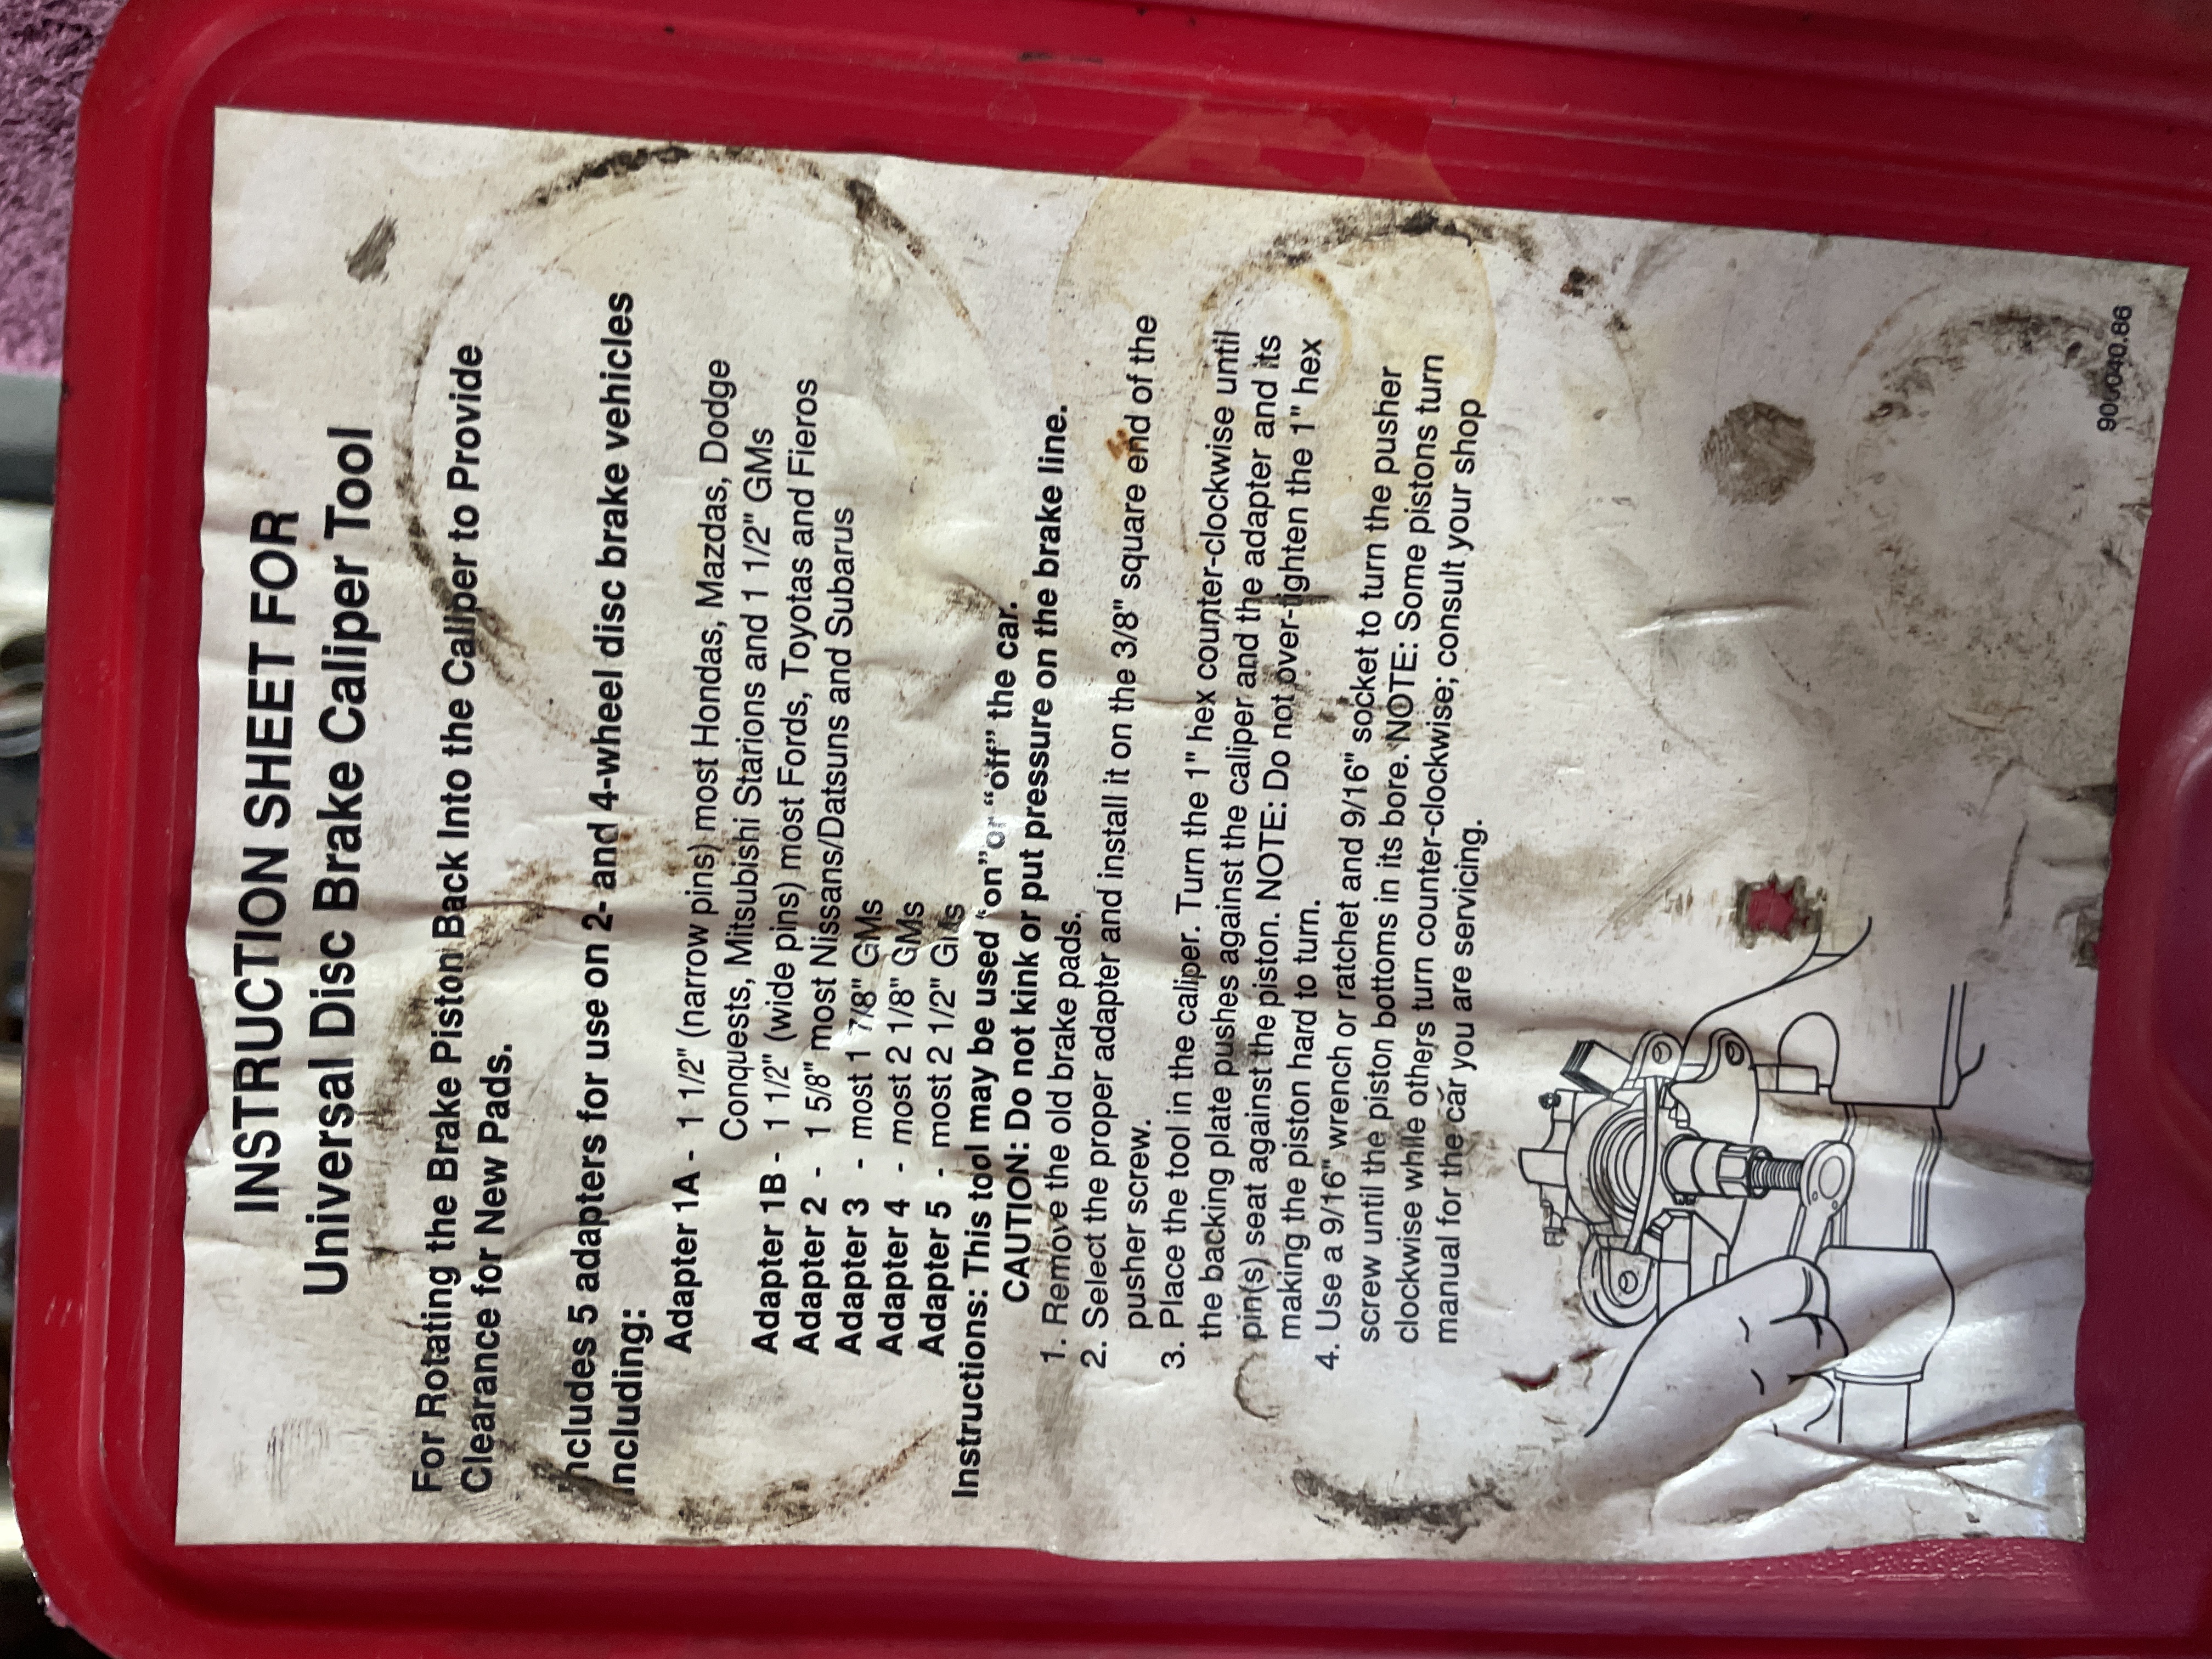 INSTRUCTION SHEET FOR
Universal Disc Brake Caliper Tool
For Rotating the Brake Piston Back Into the Caliper to Provide
Clearance for New Pads.
Includes 5 adapters for use on 2- and 4-wheel disc brake vehicles
including:
Adapter 1A - 1 1/2" (narrow pins) most Hondas, Mazdas, Dodge
Conquests, Mitsubishi Starions and 1 1/2" GMs
Adapter 1B - 1 1/2" (wide pins) most Fords, Toyotas and Fieros
Adapter 2 - 1 5/8" most Nissans/Datsuns and Subarus
Adapter 3 - most 1 7/8" GMs
Adapter 4 - most 2 1/8" GMs
Adapter 5 - most 2 1/2" GMs
Instructions: This tool may be used "on" or "off" the car.
CAUTION: Do not kink or put pressure on the brake line.
1. Remove the old brake pads.
2. Select the proper adapter and install it on the 3/8" square end of the
pusher screw.
3. Place the tool in the caliper. Turn the 1" hex counter-clockwise until
the backing plate pushes against the caliper and the adapter and its
pin(s) seat against the piston. NOTE: Do not over-tighten the 1" hex
making the piston hard to turn.
4. Use a 9/16" wrench or ratchet and 9/16" socket to turn the pusher
screw until the piston bottoms in its bore. NOTE: Some pistons turn
clockwise while others turn counter-clockwise; consult your shop
manual for the car you are servicing.
900040.86